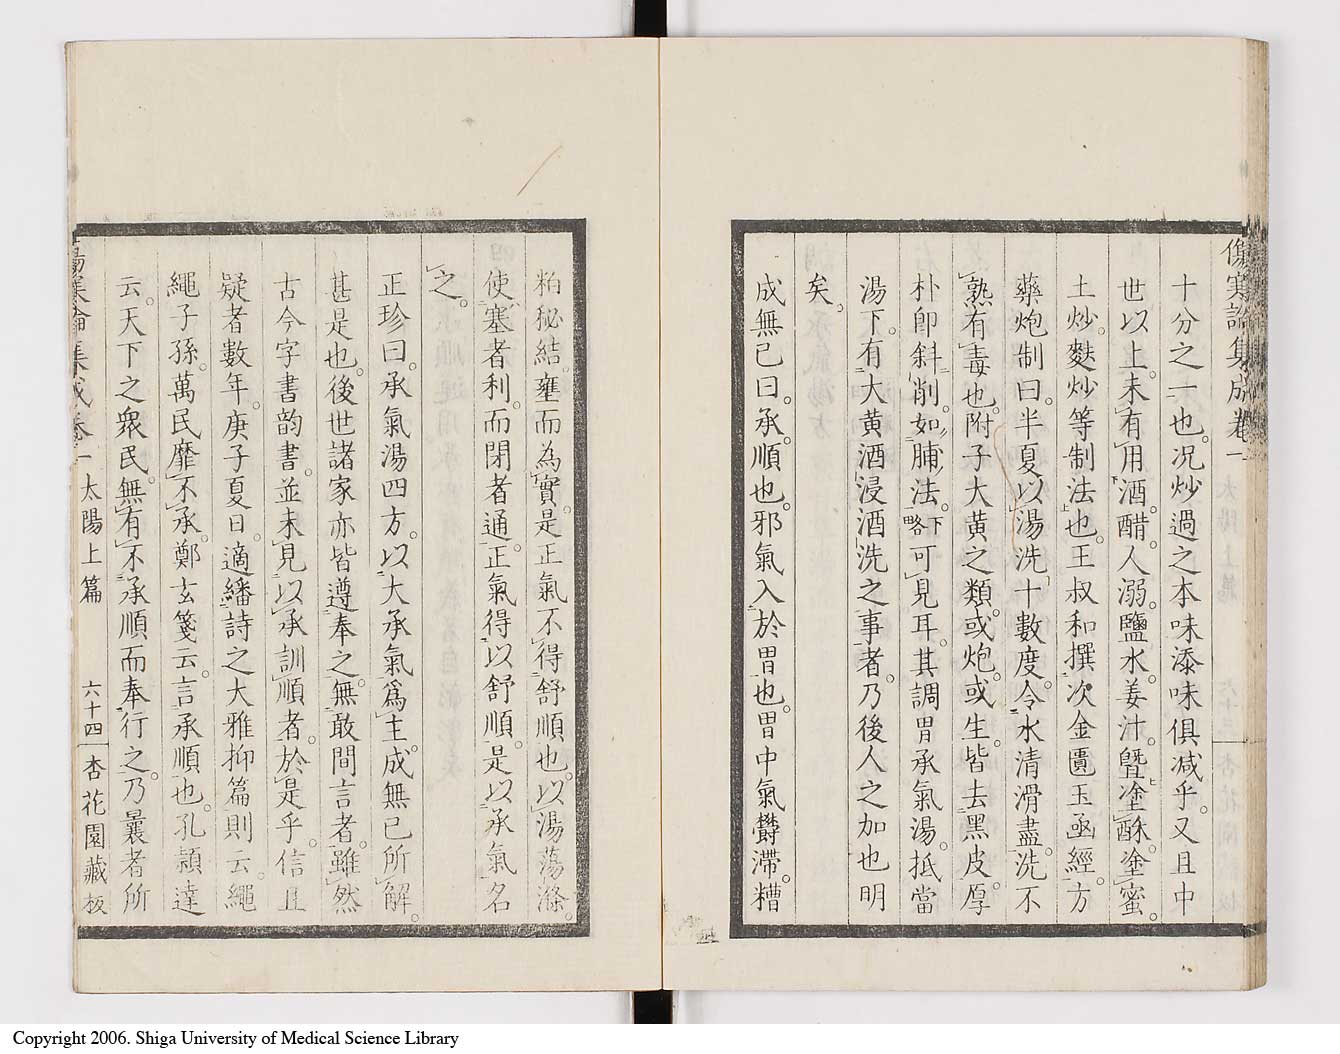 傷寒論集成卷一
十分之一也。况炒過之本味添味俱減乎。又且中
世以上。未有用酒醋。人溺。鹽水。姜汁。曁塗酥。塗蜜。
土炒。麩炒等制法也。王叔和撰次金匱玉函經。方
藥炮制曰。半夏以湯洗十數度。令水清滑盡。洗不
熟有毒也。附子大黄之類。或炮。或生。皆去黑皮。厚
朴卽斜削。如脯法。下略可見耳。其調胃承氣湯。抵當
湯下。有大黄酒浸酒洗之事者。乃後人之加也明
矣。
成無已曰。承。順也。邪氣入於胃也。胃中氣欝滯。糟
粕秘結。壅而為實。是正氣不得舒順也。以湯蕩滌。
使塞者利。而閉者通。正氣得以舒順。是以承氣名
之。
正珍曰。承氣湯四方。以大承氣爲主。成無已所解。
甚是也。後世諸家亦皆遵奉之。無敢間言者。雖然
古今字書韵書。並未見以承訓順者。於是乎。信且
疑者數年。庚子夏日。適繙詩之大雅抑篇則云。繩
繩子孫。萬民靡不承。鄭玄箋云。言承順也。孔頴達
云。天下之衆民。無有不承順而奉行之。乃曩者所
傷寒論集成卷一 太陽上篇 六十四 杏花園藏板
Copyright 2006. Shiga University of Medical Science Library